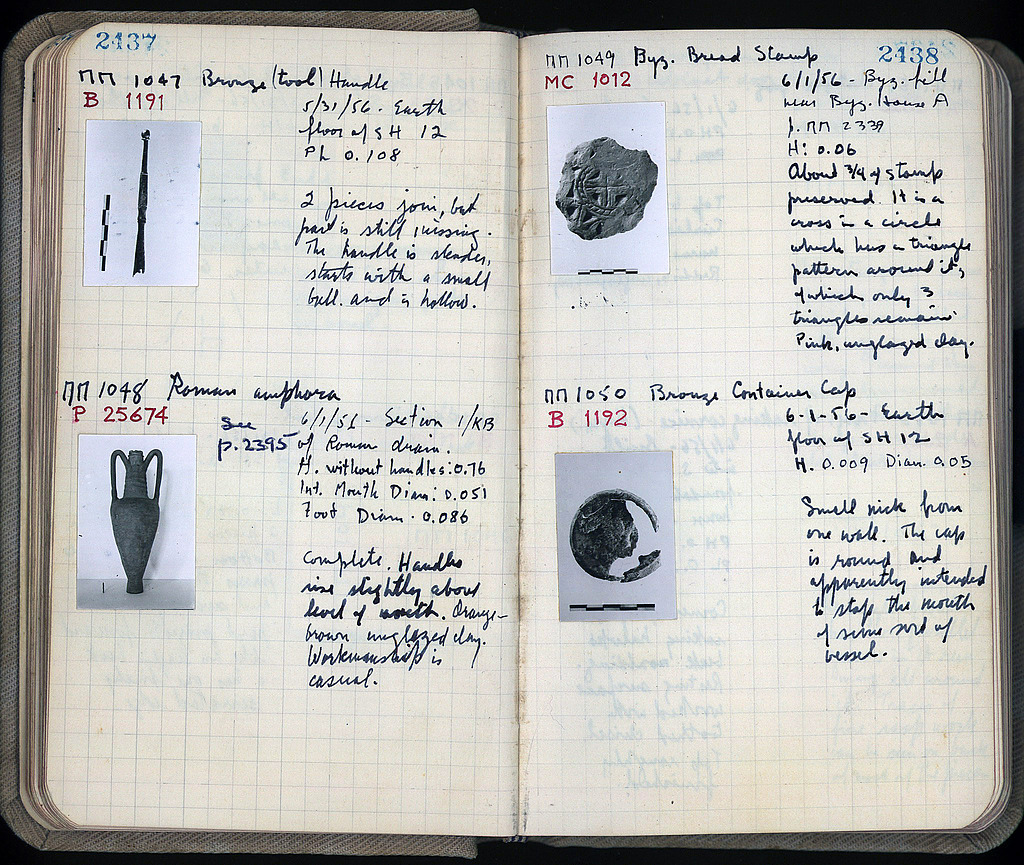 2437
ΠΠ 1047 Bronze (tool) Handle
B 1191
5/31/56 - Earth
floor of SH 12
PL 0.108
2 pieces join, but
part is still missing.
The handle is slender,
starts with a small
ball and is hollow.
ΠΠ 1048 Roman amphora
P 25674
See
p. 2395
6/1/56 - Section 1/KB
of Roman drain.
H. without handles: 0.76
Int. Mouth Diam: 0.051
Foot Diam. 0.086
Complete. Handles
rise slightly above
level of mouth. Orange-
brown unglazed clay.
Workmanship is
casual.
2438
ΠΠ 1049 Byz. Bread Stamp
MC 1012
6/1/56 - Byz. fill
near Byz. House A
p. ΠΠ 2339
H: 0.06
About 3/4 of stamp
preserved. It is a
cross in a circle
which has a triangle
pattern around it,
of which only 3
triangles remain.
Pink, unglazed clay.
ΠΠ 1050 Bronze Container Cap
B 1192
6-1-56 - Earth
floor of SH 12
H. 0.009 Diam. 0.05
Small nick from
one wall. The cap
is round and
apparently intended
to stop the mouth
of some sort of
vessel.